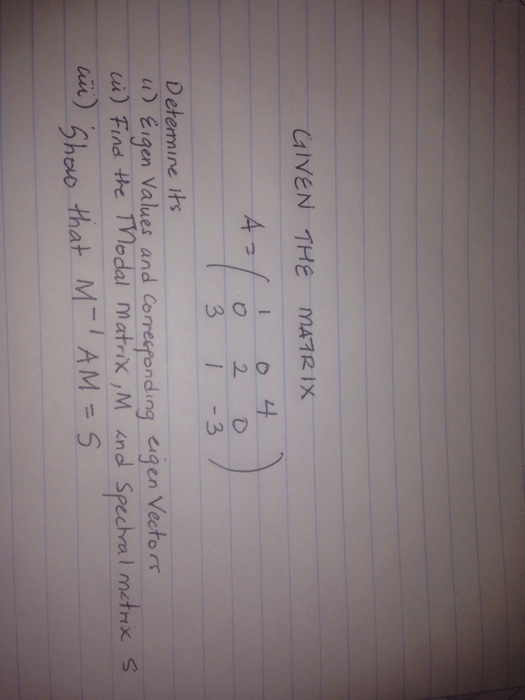 GIVEN THE MATRIX
A = ( 1 0 4
0 2 0
3 1 -3 )
Determine its
(i) Eigen Values and Corresponding eigen Vectors
(ii) Find the Modal matrix, M and Spectral matrix S
(iii) Show that M⁻¹ AM = S